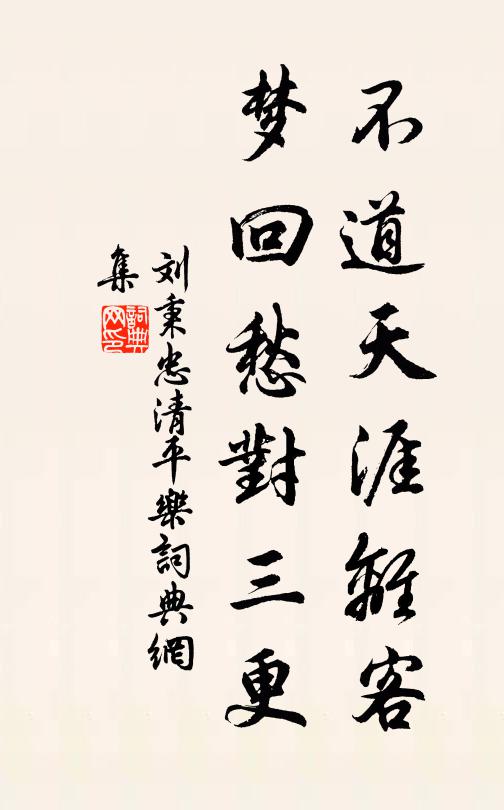 不道天涯離客
梦回愁對三更
刘秉忠清平樂詞典網
集
詞典
网印